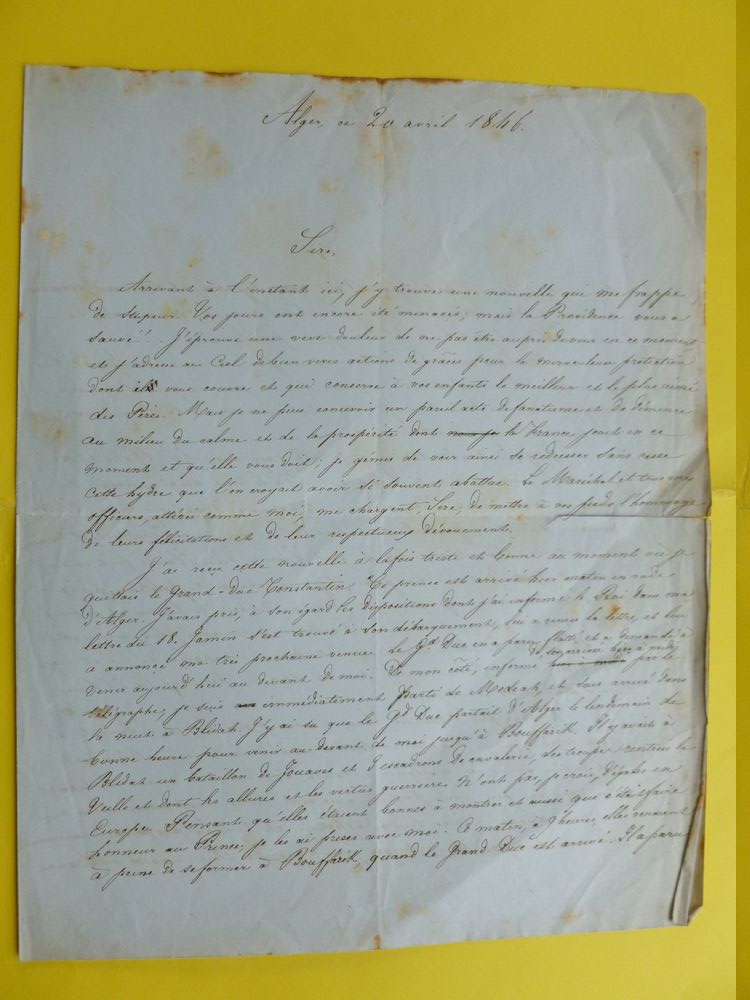 Alger, ce 20 avril 1846.
Sire,
Arrivant à l'instant ici, j'y trouve une nouvelle qui me frappe
de stupeur. Vos jours ont encore été menacés; mais la Providence vous a
sauvé!!. J'éprouve une vive douleur de ne pas être auprès de vous en ce moment
et j'adresse au Ciel de bien vives actions de grâces pour la merveilleuse protection
dont il vous couvre et qui conserve à vos enfants le meilleur et le plus aimé
des Pères. Mais je ne puis concevoir un pareil acte de fanatisme et de démence
au milieu du calme et de la prospérité dont la France jouit en ce
moment et qu'elle vous doit; je gémis de voir ainsi se redresser sans cesse
cette hydre que l'on croyait avoir si souvent abattue. Le Maréchal et tous mes
officiers, attérés comme moi, me chargent, Sire, de mettre à vos pieds l'hommage
de leurs félicitations et de leur respectueux dévouement.
J'ai reçu cette nouvelle à la fois triste et bonne au moment où je
quittais le Grand-Duc Constantin. Ce prince est arrivé hier matin en rade
d'Alger. J'avais pris, à son égard les dispositions dont j'ai informé le Roi dans ma
lettre du 18. Jamin s'est trouvé à son débarquement, lui a remis la lettre, et lui
a annoncé ma très prochaine venue. Le Gd Duc en a paru flatté et a demandé à
venir aujourd'hui au devant de moi. De mon côté, informé de son arrivée hier à midi par le
télégraphe, je suis immédiatement parti de Médéah, et suis arrivé dans
la nuit à Blidah. J'y ai su que le Gd Duc partait d'Alger le lendemain de
bonne heure pour venir au devant de moi jusqu'à Bouffarik. Il y avait à
Blidah un bataillon de Zouaves et 3 escadrons de cavalerie, des troupes rentrées la
veille et dont les allures et les vertus guerrières n'ont pas, je crois, d'égales en
Europe. Pensant qu'elles étaient bonnes à montrer et aussi que c'était faire
honneur au Prince, je les ai prises avec moi. Ce matin, à 9 heures, elles venaient
à peine de se former à Bouffarik, quand le Grand Duc est arrivé. Il a paru